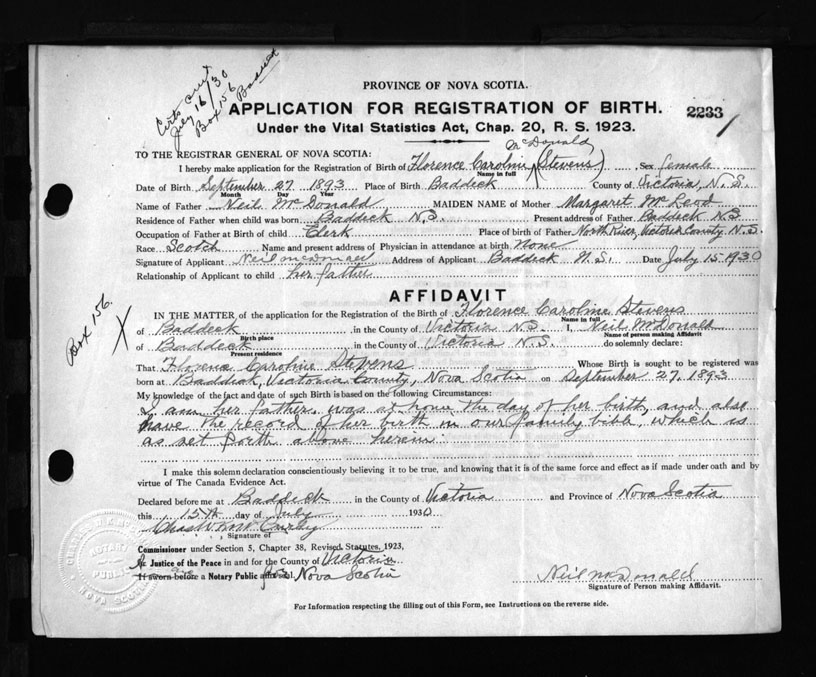 Certs sent
July 16/30
Box 156
Baddeck
PROVINCE OF NOVA SCOTIA.
APPLICATION FOR REGISTRATION OF BIRTH.
2233
1
Under the Vital Statistics Act, Chap. 20, R. S. 1923.
McDonald
TO THE REGISTRAR GENERAL OF NOVA SCOTIA:
I hereby make application for the Registration of Birth of Florence Caroline (Stevens) Sex female
Name in full
Date of Birth September 27 1893 Place of Birth Baddeck County of Victoria, N. S.
Month Day Year
Name of Father Neil McDonald MAIDEN NAME of Mother Margaret McLeod
Residence of Father when child was born Baddeck N.S. Present address of Father Baddeck N.S
Occupation of Father at Birth of child Clerk Place of birth of Father North River, Victoria County N.S.
Race Scotch Name and present address of Physician in attendance at birth None
Signature of Applicant Neil McDonald Address of Applicant Baddeck N.S. Date July 15 1930
Relationship of Applicant to child her father
AFFIDAVIT
Box 156.
X
IN THE MATTER of the application for the Registration of the Birth of Florence Caroline Stevens
Name in full
of Baddeck in the County of Victoria N.S. I, Neil McDonald
Birth place Name of person making Affidavit
of Baddeck in the County of Victoria N.S. do solemnly declare:
Present residence
That Florena Caroline Stevens Whose Birth is sought to be registered was
born at Baddeck, Victoria County, Nova Scotia on September 27, 1893
My knowledge of the fact and date of such Birth is based on the following Circumstances:
I am her father, was at home the day of her birth, and also
have the record of her birth in our family bible, which is
as set forth above herein.
I make this solemn declaration conscientiously believing it to be true, and knowing that it is of the same force and effect as if made under oath and by
virtue of The Canada Evidence Act.
Declared before me at Baddeck in the County of Victoria and Province of Nova Scotia
this 15th day of July 1930
Signature of
Commissioner under Section 5, Chapter 38, Revised Statutes, 1923,
Justice of the Peace in and for the County of Victoria
If sworn before a Notary Public affix seal. Nova Scotia
Neil McDonald
Signature of Person making Affidavit.
For Information respecting the filling out of this Form, see Instructions on the reverse side.
NOTARY
PUBLIC
NOVA SCOTIA